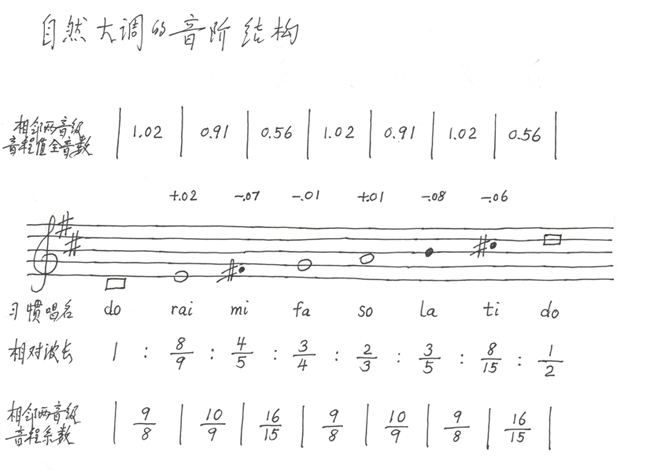 自然大调的音阶结构
相邻两音级
音程值全音数 | 1.02 | 0.91 | 0.56 | 1.02 | 0.91 | 1.02 | 0.56 |
+.02 -.07 -.01 +.01 -.08 -.06
习惯唱名 do rai mi fa so la ti do
相对波长 1 : 8/9 : 4/5 : 3/4 : 2/3 : 3/5 : 8/15 : 1/2
相邻两音级
音程系数 | 9/8 | 10/9 | 16/15 | 9/8 | 10/9 | 9/8 | 16/15 |